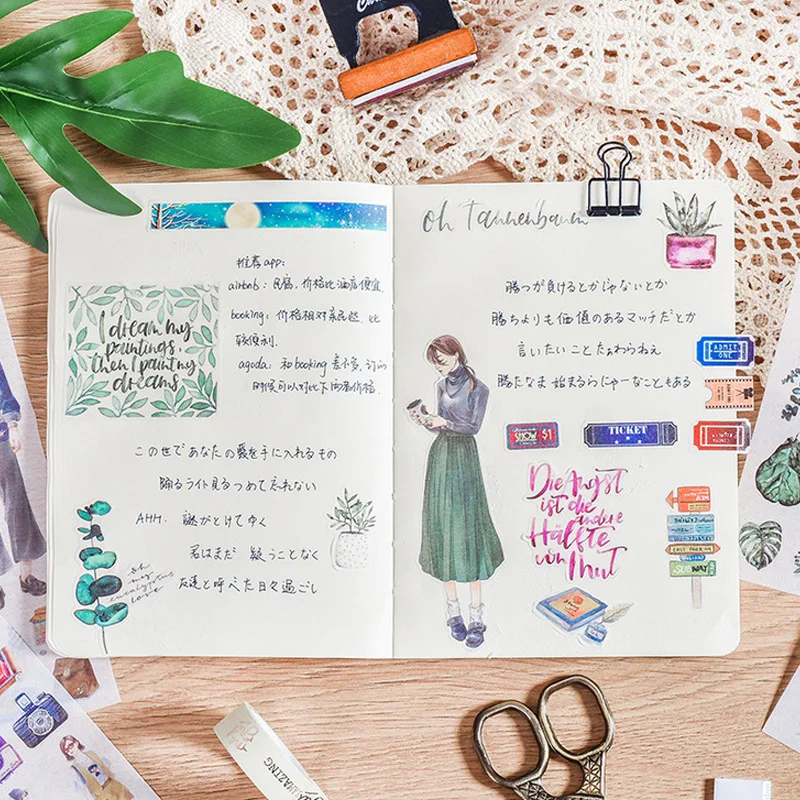 推荐app:
airbnb: 民宿,价格比酒店便宜
booking: 价格相对亲民些,比
较便利.
agoda: 和booking差不多,订的
时候可以对比下两者价格.
I dream my
paintings,
then I paint my
dreams
この世であなたの愛を手に入れるもの
踊るライト見るつめて忘れない
AHH. 謎がとけてゆく
君はまだ 疑うことなく
友達と呼べた日々過ごし
oh
my
eucalyptus
love
oh Tannenbaum
勝つが負けるとかじゃないとか
勝ちよりも価値のあるマッチだとか
言いたいことたぁわらねぇ
勝たなま始まるらにゃーなこともある
ADMIT
ONE
SHOW $1
TICKET
Die Angst
ist die
andere
Hälfte
von Mut
EAST PARK
SUBWAY
AMAZING